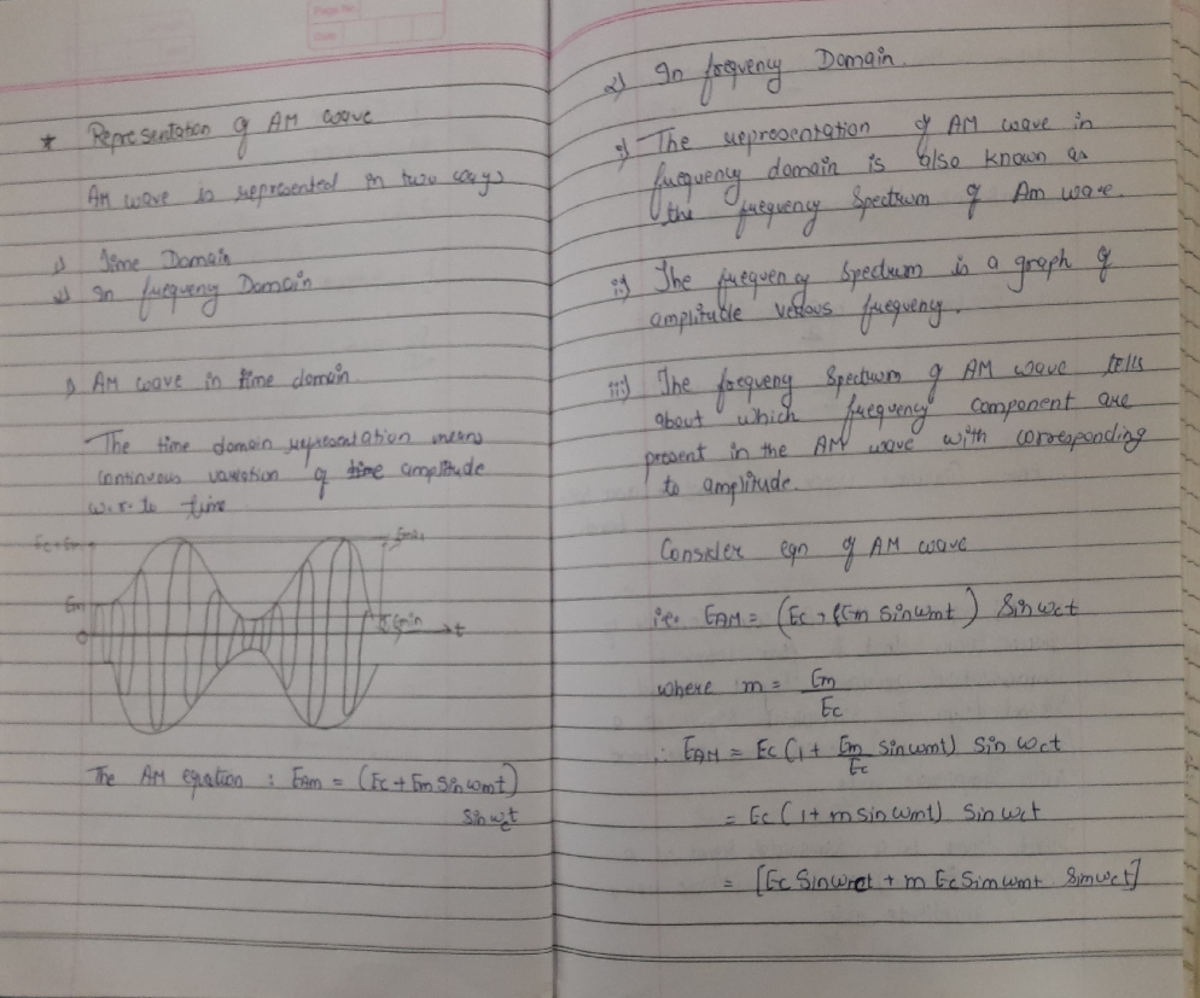 Page No.
Date
* Representation of AM wave
AM wave is represented in two ways
1) Time Domain
2) In frequeny Domain
1) AM wave in time domain
The time domain representation means
continuous variation of time amplitude
w.r. to time
Ec+Em
Em
0
Emin
t
The AM equation : EAm = (Ec + Em Sin ωmt)
Sin ωct
2) In frequency Domain.
i) The representation of AM wave in
frequency domain is also known as
the frequency Spectrum of Am wave.
ii) The frequency Spectrum is a graph of
amplitude versous frequeny.
iii) The frequeny Spectrum of AM wave tells
about which frequency component are
present in the AM wave with corresponding
to amplitude.
Consider eqn of AM wave
i.e. EAM = (Ec + Em Sin ωmt) Sin ωct
where m = Em/Ec
∴ EAM = Ec (1 + Em/Ec Sin ωmt) Sin ωct
= Ec (1 + m sin ωmt) Sin ωct
= [Ec Sin ωct + m Ec Sim ωmt Sim ωct]